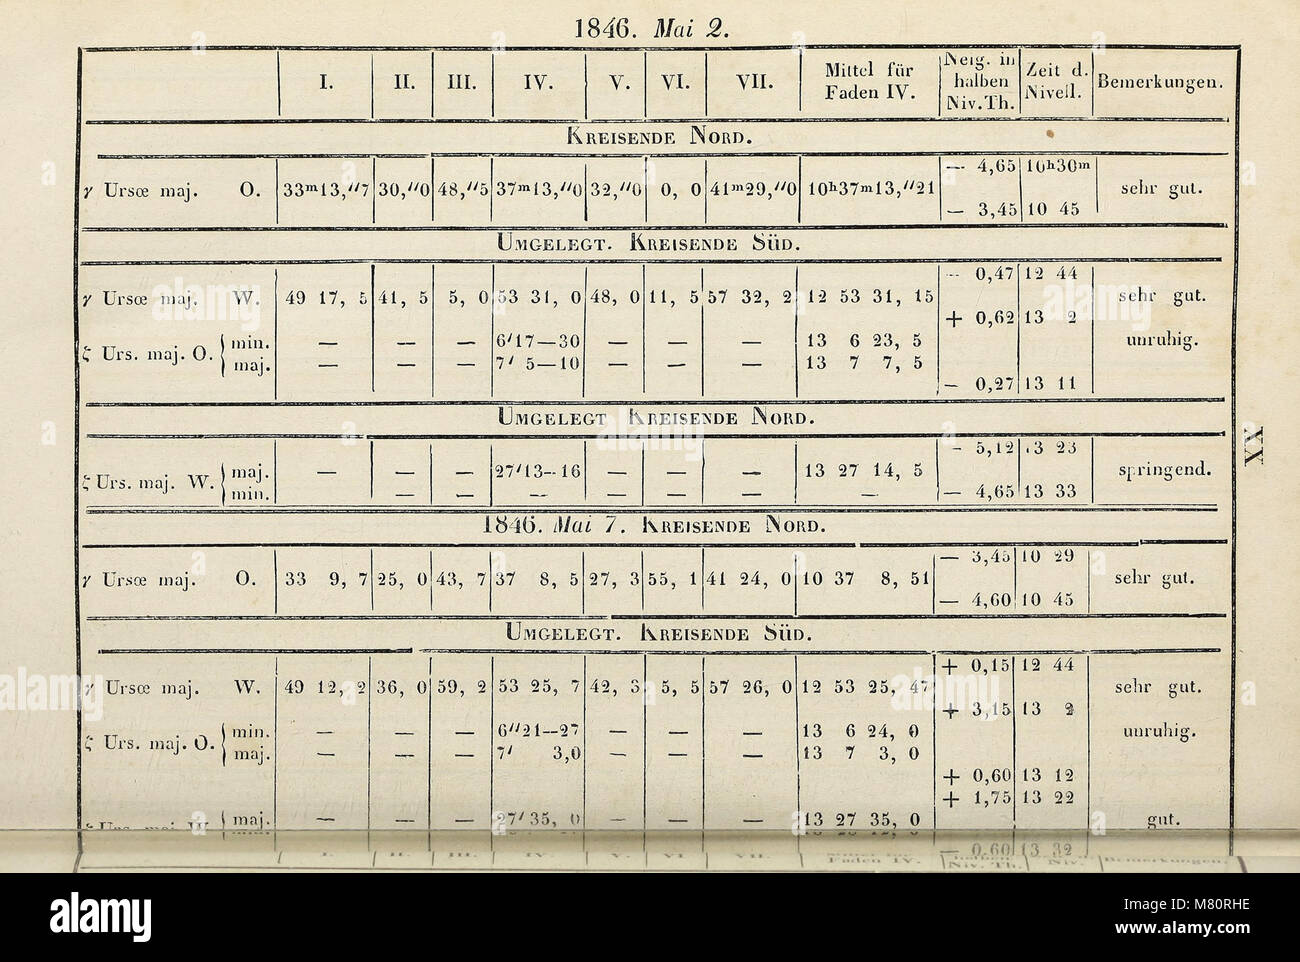 1846. Mai 2.
I. II. III. IV. V. VI. VII. Mittel für Faden IV. Neig. in halben Niv. Th. Zeit d. Nivell. Bemerkungen.
KREISENDE NORD.
— 4,65 10h30m
γ Ursœ maj. O. 33m13,"7 30,"0 48,"5 37m13,"0 32,"0 0, 0 41m29,"0 10h37m13,"21 sehr gut.
— 3,45 10 45
UMGELEGT. KREISENDE SÜD.
— 0,47 12 44
γ Ursœ maj. W. 49 17, 5 41, 5 5, 0 53 31, 0 48, 0 11, 5 57 32, 2 12 53 31, 15 sehr gut.
+ 0,62 13 2
ζ Urs. maj. O. min. — — — 6'17—30 — — — 13 6 23, 5 unruhig.
maj. — — — 7' 5—10 — — — 13 7 7, 5
— 0,27 13 11
UMGELEGT KREISENDE NORD.
— 5,12 13 23
ζ Urs. maj. W. maj. — — — 27'13-16 — — — 13 27 14, 5 springend.
min. — — — — — — — — 4,65 13 33
1846. Mai 7. KREISENDE NORD.
— 3,45 10 29
γ Ursœ maj. O. 33 9, 7 25, 0 43, 7 37 8, 5 27, 3 55, 1 41 24, 0 10 37 8, 51 sehr gut.
— 4,60 10 45
UMGELEGT. KREISENDE SÜD.
+ 0,15 12 44
γ Ursœ maj. W. 49 12, 2 36, 0 59, 2 53 25, 7 42, 3 5, 5 57 26, 0 12 53 25, 47 sehr gut.
+ 3,15 13 2
ζ Urs. maj. O. min. — — — 6"21—27 — — — 13 6 24, 0 unruhig.
maj. — — — 7' 3,0 — — — 13 7 3, 0
+ 0,60 13 12
+ 1,75 13 22
ζ Urs. maj. W. maj. — — — 27'35, 0 — — — 13 27 35, 0 gut.
— 0,60 13 32
I. II. III. IV. V. VI. VII. Faden IV. Niv. Th. Bemerkungen.
XX
alamy
alamy
alamy
alamy
alamy
alamy
Image ID: M80RHE
www.alamy.com